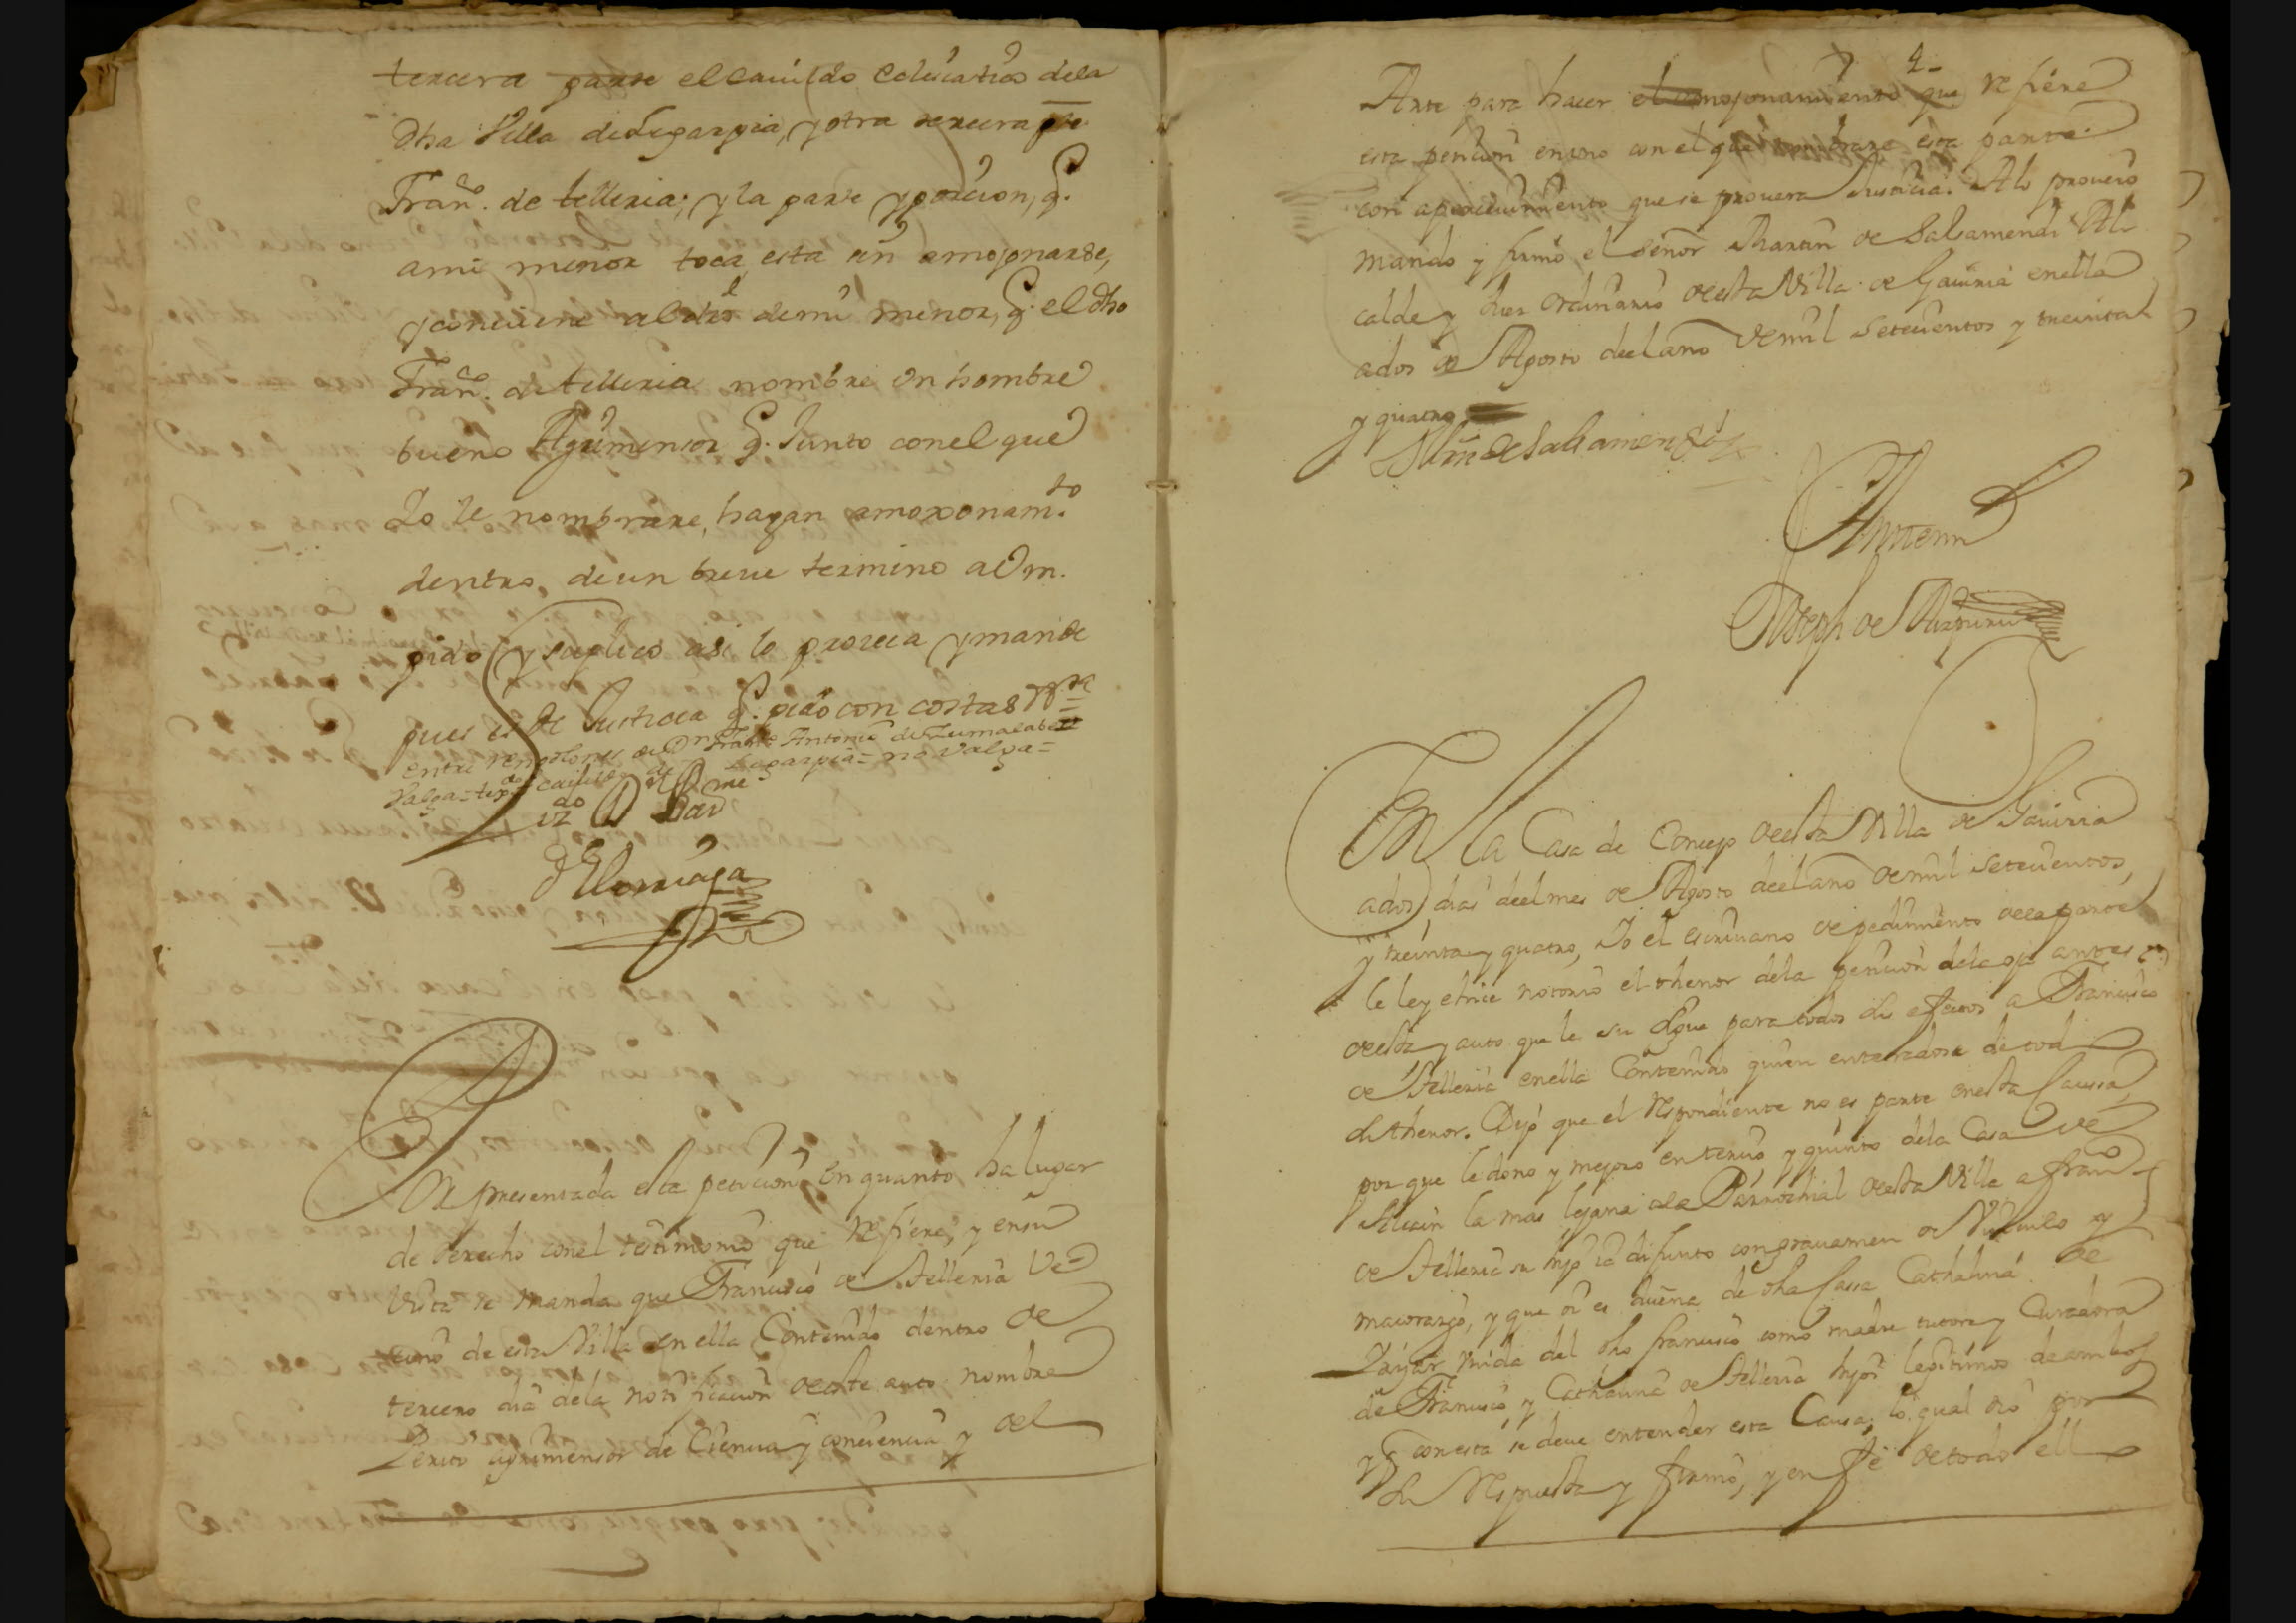 tercera parte el cauildo eclesiastico dela
dha Villa de Legazpia, y otra tercera pte
Franco. de telleria; y la parte y porcion, q.
ami menor toca, esta sin amojonarse,
y conviene al dro demi menor, q. el dho
Franco. de telleria nombre vn hombre
bueno Agrimensor q. Junto con el que
Yo le nombrare, hagan amoxonamto.
dentro, de un breue termino a Vm.
pido y suplico asi lo provea y mande
pues es de Justicia q. pido con costas
entre renglones, de Dn Antonio de Zumalabe
Valga = cauildo de Legazpia = no Valga =
de Elorriaga
Por presentada esta peticion en quanto ha lugar
de derecho con el testimonio que refiere, y en su
vista se manda que Francisco de Telleria Ve=
cino de esta Villa en ella Contenido dentro de
tercero dia dela notificacion de este auto nombre
Perito agrimensor de Ciencia y conciencia y del
4
Arte para hacer el amojonamiento que refiere
esta peticion en uno con el que nombrare esta parte
con aperciuimiento que se prouera Justicia. Asi lo proueio
mando y firmo el señor Martin de Salsamendi Al=
calde y Juez ordinario de esta Villa de Gauiria en ella
a dos de Agosto de el año de mil setecientos y treinta
y quatro
Mrn de Salsamendi
Ante mi
Joseph de Aizpuru
En la Casa de Concejo de esta Villa de Gauiria
a dos dias de el mes de Agosto de el año de mil setecientos,
y treinta y quatro, Yo el escriuano de pedimiento de la parte
le ley e hice notorio el thenor dela peticion dela oja antes
de esta y auto que le su sigue para todos sus efectos a Francisco
de Telleria en ella Contenido quien enterado de todo
su thenor. Dijo que el Respondiente no es parte en esta Caussa,
por que le dono y mejoro en tercio y quinto dela Casa de
la mas lejana de la Parrochial de esta Villa a Franco
de Telleria su hijo ia difunto con grauamen de Vinculo y
maiorazgo, y que oi es dueña de dha Cassa Cathalina de
Viuda del dho francisco como madre tutora y Curadora
de Francisco y Cathalina de Telleria hijos legitimos de ambos
y q con esta se deue entender esta Causa; lo qual dio por
su Respuesta y firmo, y en fe de todo ello